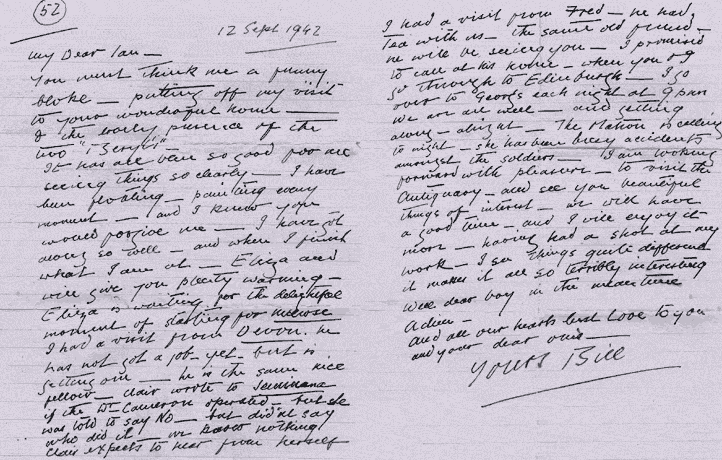 52
12 Sept 1942
My Dear Ian —
You must think me a funny
bloke — putting off my visit
to your wonderful home —
& the lovely presence of the
two
It has all been so good for me
seeing things so clearly — I have
been floating — painting every
moment — and I knew you
would forgive me — I have got
along so well — and when I finish
what I am at — Eliza and
will give you plenty warning —
Eliza is waiting for the delightful
moment of starting for
I had a visit from Devon. he
has not got a job yet. but is
getting one — he is the same nice
fellow — Clair wrote to
if the Dr. Cameron operated — but she
was told to say No — but didn't say
who did it — we know nothing
Clair expects to hear from herself
I had a visit from Fred — he had
Tea with us — the same old friend —
he will be seeing you — I promised
to call at his home — when you & I
go through to Edinburgh — I go
over to Georgs each night at 9 pm
we are all well — and getting
along — alright — The Matron is calling
to night — she has been busy accidents
amongst the soldiers — I am looking
forward with pleasure — to visit the
Antiquary — and see you beautiful
things of interest — we will have
a good time — and I will enjoy it
more — having had a shot at my
work — I see things quite different
it makes it all so terribly interesting
Well dear boy in the meantime
Adieu —
and all our hearts best Love to you
and your dear ones —
Yours Bill